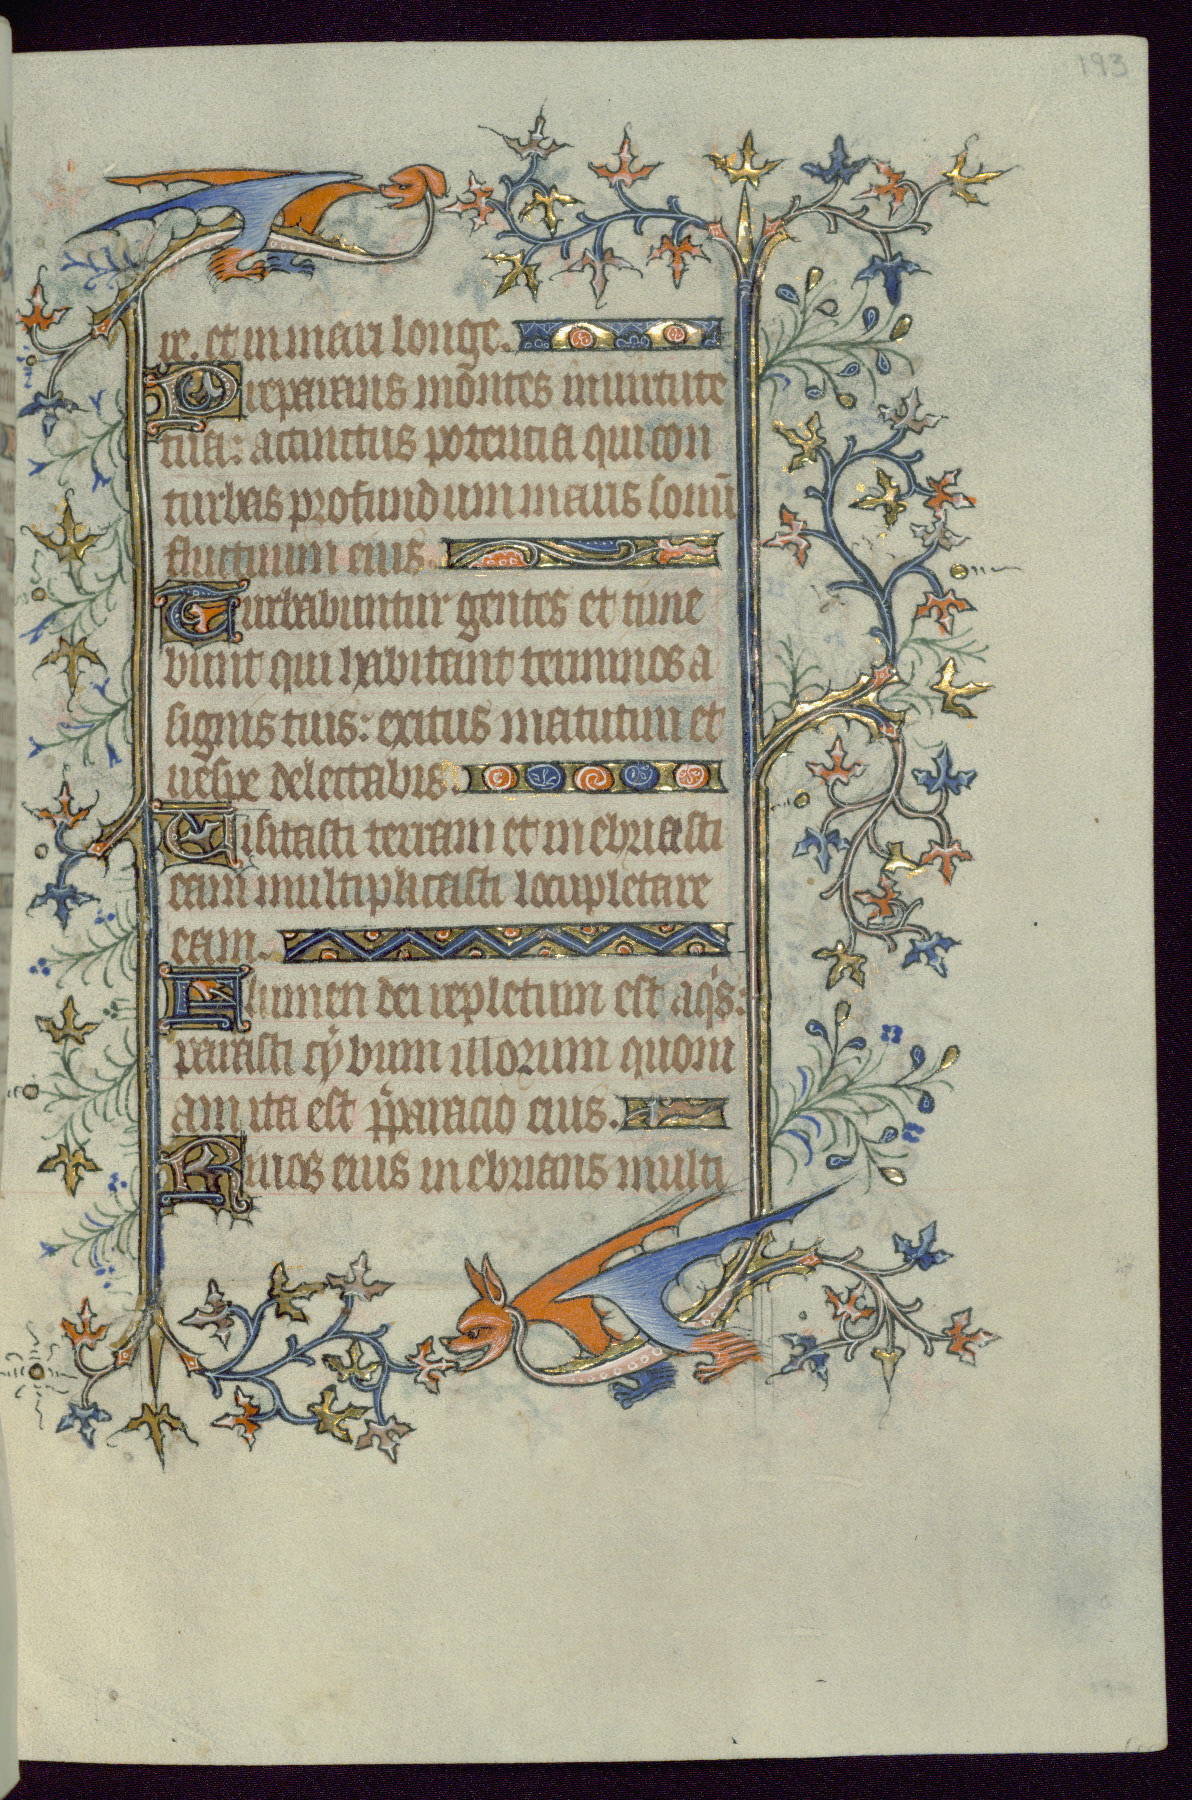 193
re. et in mari longe.
Preparans mōntes in uirtute
tua: accinctus potencia qui con
turbas profundum maris sonū
fluctuum eius.
Turbabuntur gentes et time
bunt qui habitant terminos a
signis tuis: exitus matutini et
uespe delectabis.
Uisitasti terram et in ebriasti
eam multiplicasti locupletare
eam.
Flumen dei repletum est aqis:
parasti cybum illorum quoni
am ita est pparacio eius.
Riuos eius in ebrians multi